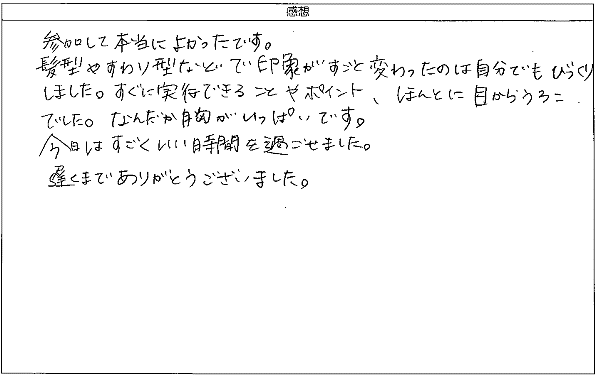 感想
参加して本当によかったです。
髪型やすわり型などで印象がすごと変わったのは自分でもびっくり
しました。すぐに実行できることやポイント、ほんとに目からうろこ
でした。なんだか胸がいっぱいです。
今日はすごくいい時間を過ごせました。
遅くまでありがとうございました。